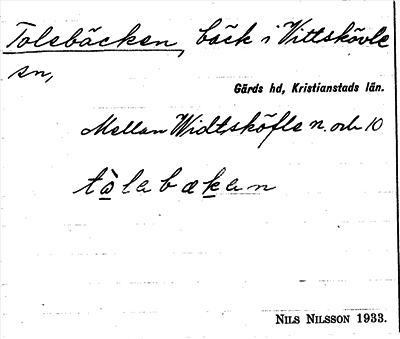 Tolebäcken, bäck i Vittskövle
sn,
Gärds hd, Kristianstads län.
Mellan Widtsköfle n. och 10
tòlebæken
NILS NILSSON 1933.